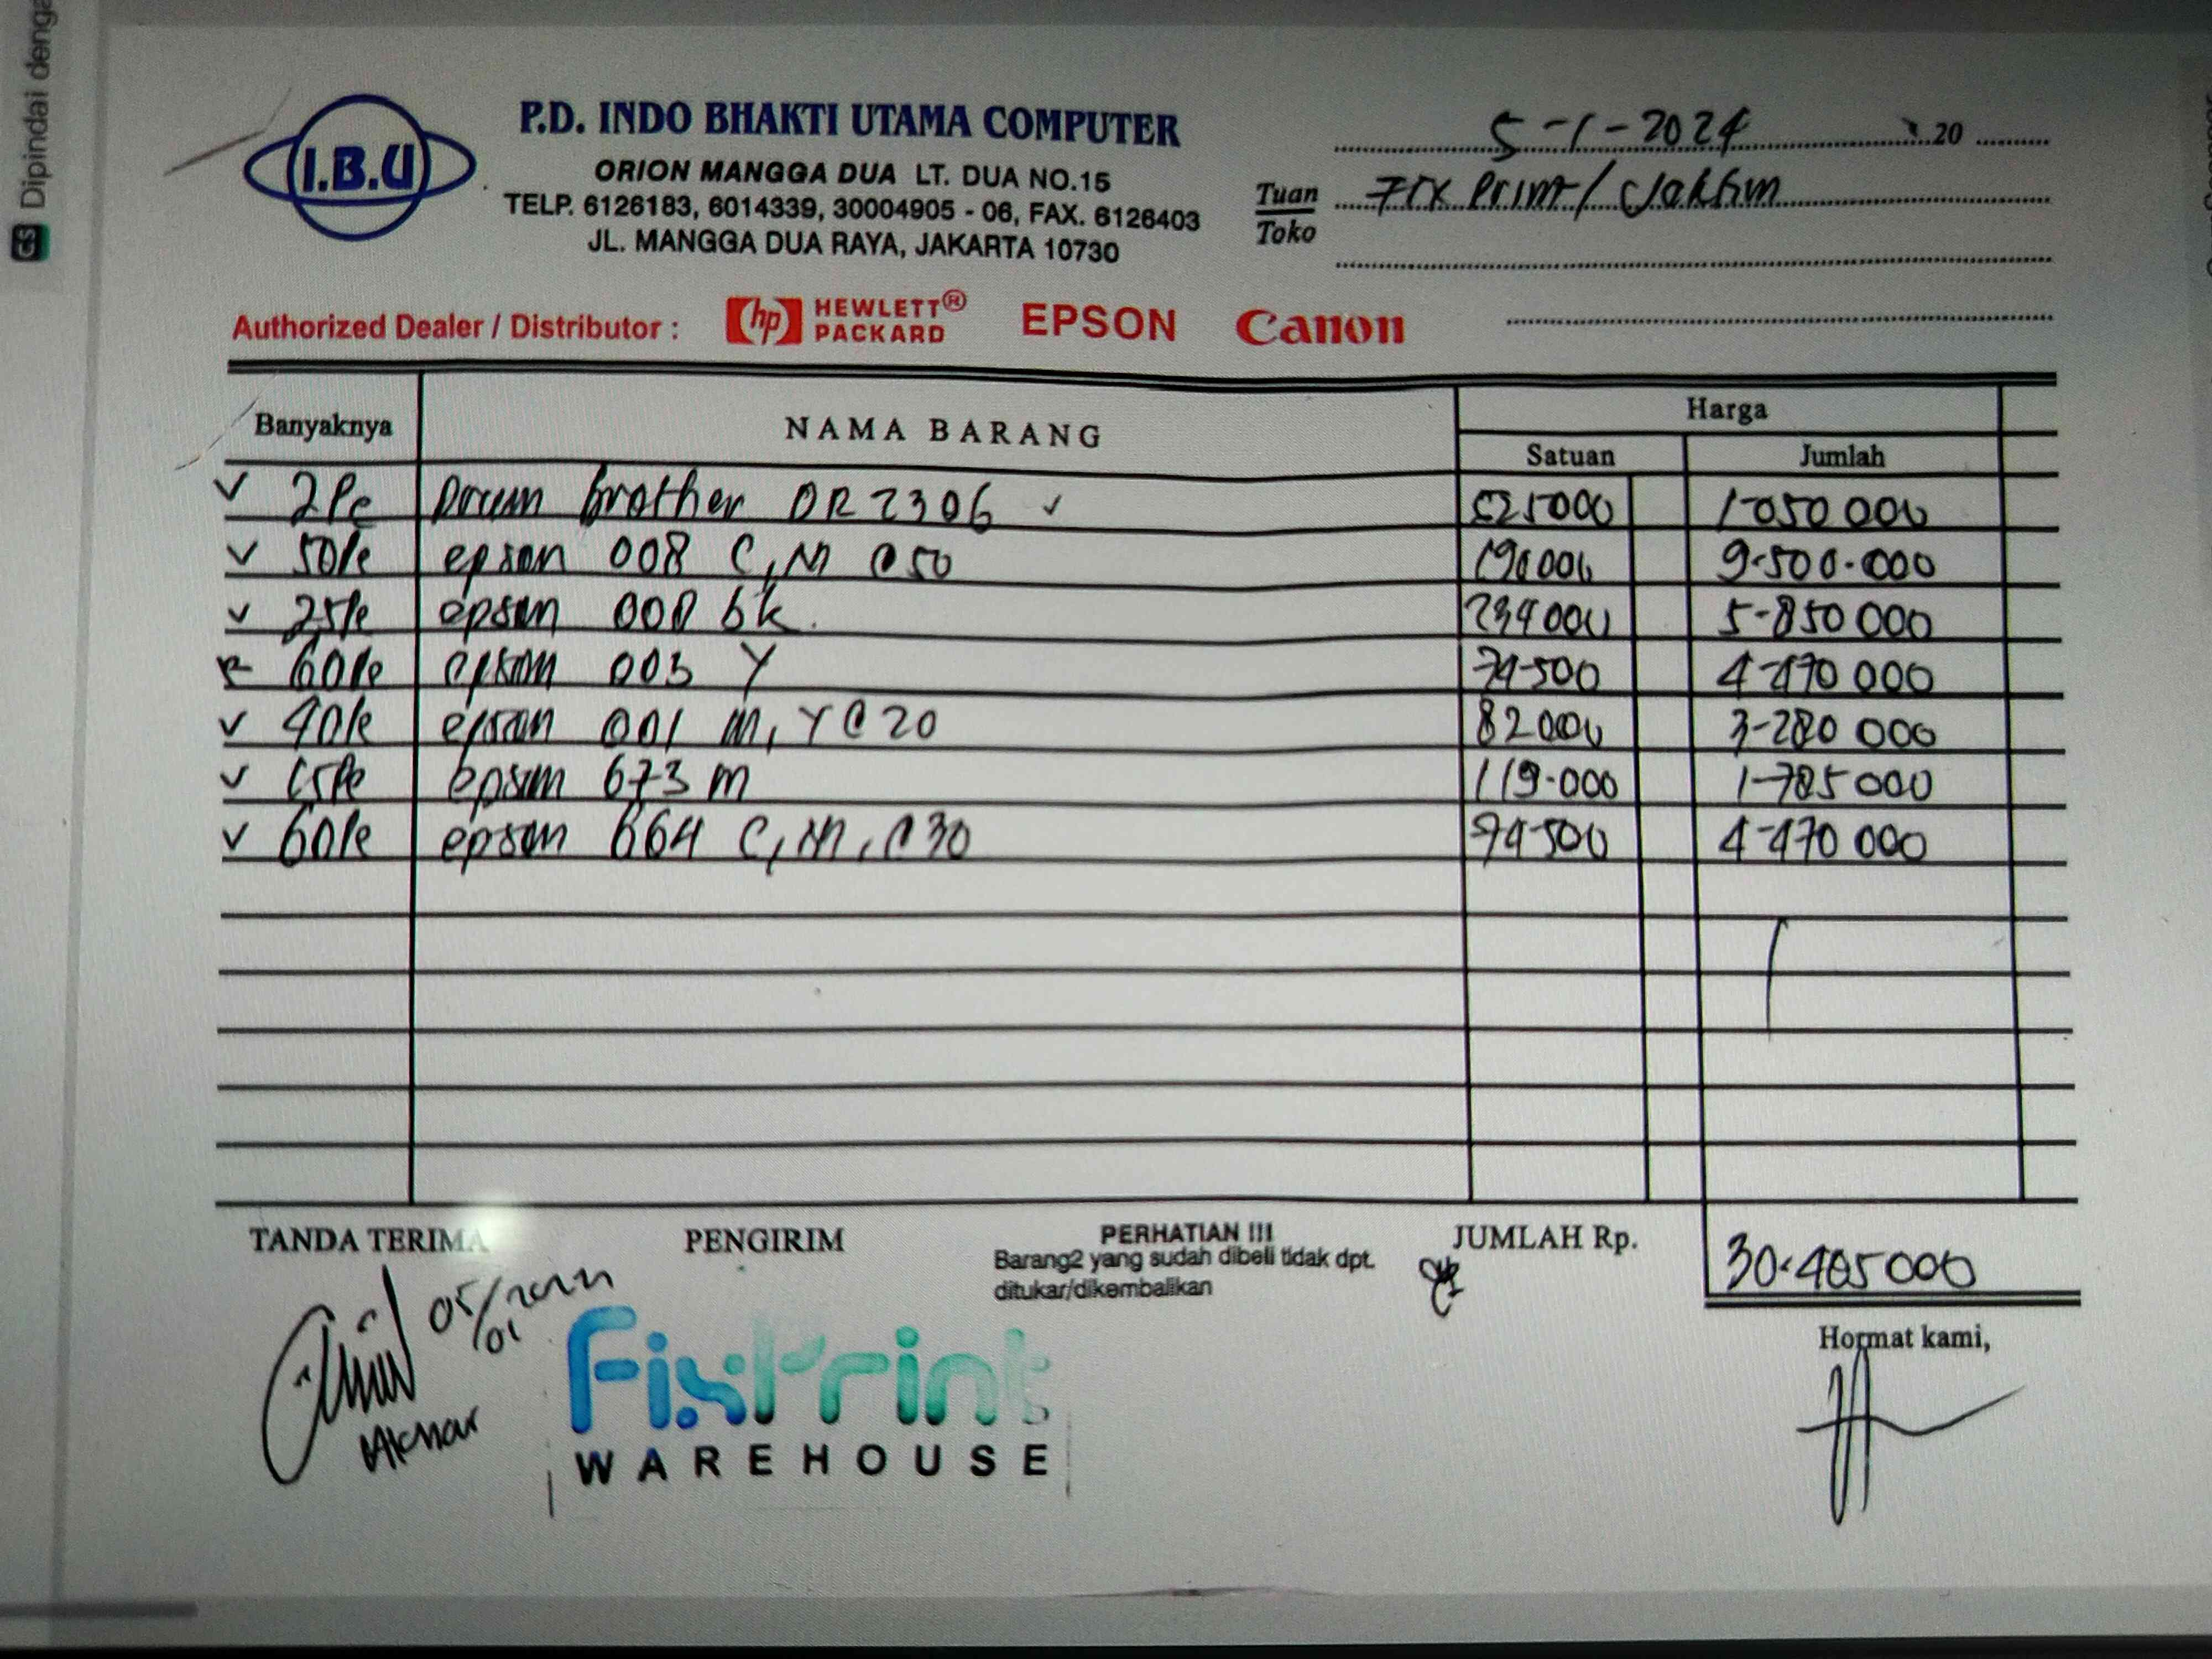 Dipindai denga
CS
I.B.U
P.D. INDO BHAKTI UTAMA COMPUTER
ORION MANGGA DUA LT. DUA NO.15
TELP. 6126183, 6014339, 30004905 - 06, FAX. 6126403
JL. MANGGA DUA RAYA, JAKARTA 10730
5-1-2024 20
Tuan Toko Fix Print / Jaktim
Authorized Dealer / Distributor : hp HEWLETT® PACKARD EPSON Canon
Banyaknya NAMA BARANG Harga
Satuan Jumlah
2Pc Drum brother DR 2306 525000 1-050 000
50Pc epson 008 C, M @50 190000 9-500-000
25Pc epson 008 bk. 234000 5-850 000
60Pc epson 003 Y 74-500 4-470 000
40Pc epson 001 m, Y @ 20 82000 3-280 000
15Pc epson 673 m 119.000 1-785 000
60Pc epson 664 C, M, @30 74-500 4-470 000
TANDA TERIMA PENGIRIM PERHATIAN !!! JUMLAH Rp. 30.405 000
Barang2 yang sudah dibeli tidak dpt.
ditukar/dikembalikan
05/01
Akhar
FixPrint
WAREHOUSE
Hormat kami,